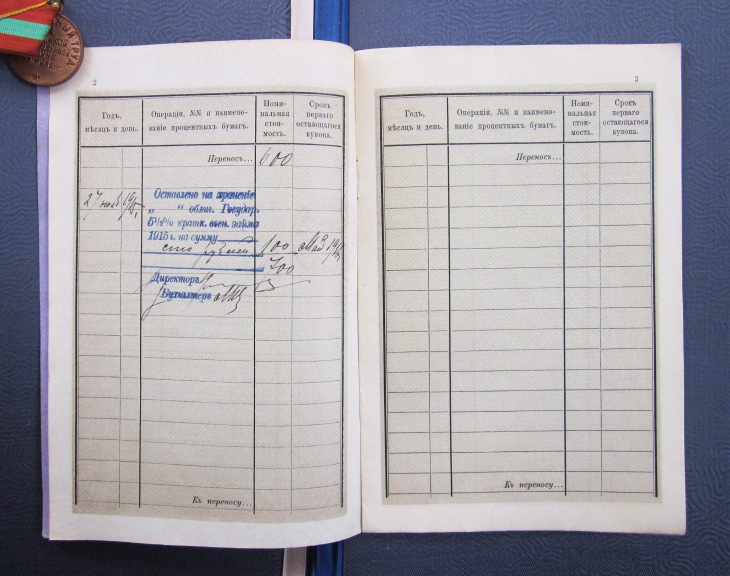 ТРУД
2
Годъ,
мѣсяцъ и день.
Операціи, №№ и наимено-
ваніе процентныхъ бумагъ.
Номи-
нальная
стои-
мость.
Срокъ
перваго
остающагося
купона.
Переносъ... 600
27 1915
Оставлено на храненіе
„ “ облиг. Государ.
5½% кратк. воен. займа
1915 г. на сумму
сто рублей 100 Май 1916
700
Директоръ
Бухгалтеръ
Къ переносу...
3
Годъ,
мѣсяцъ и день.
Операціи, №№ и наимено-
ваніе процентныхъ бумагъ.
Номи-
нальная
стои-
мость.
Срокъ
перваго
остающагося
купона.
Переносъ...
Къ переносу...